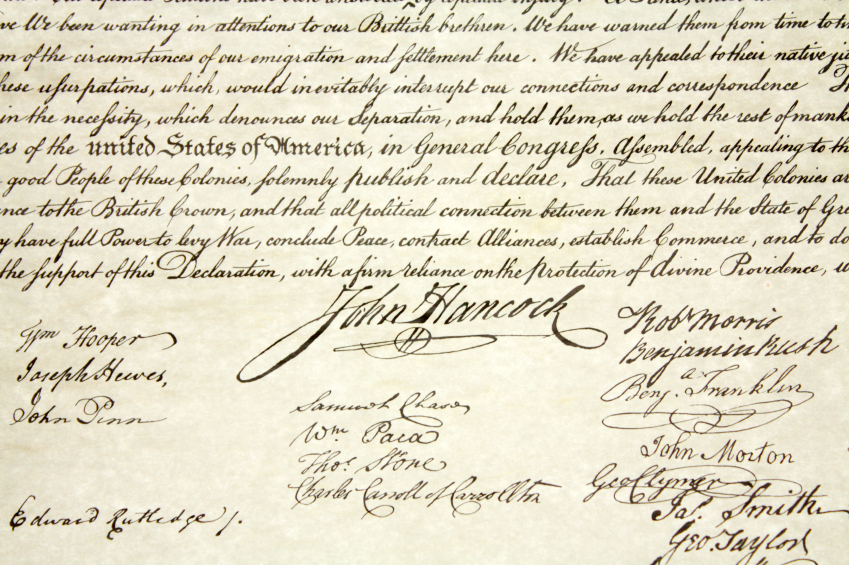 ve We been wanting in attentions to our Brittish brethren. We have warned them from time to
m of the circumstances of our emigration and settlement here. We have appealed to their native
hese usurpations, which, would inevitably interrupt our connections and correspondence
in the necessity, which denounces our Separation, and hold them, as we hold the rest of
es of the united States of America, in General Congress, Assembled, appealing to
good People of these Colonies, solemnly publish and declare, That these United Colonies
nce to the British Crown, and that all political connection between them and the State of
have full Power to levy War, conclude Peace, contract Alliances, establish Commerce, and to do
the support of this Declaration, with a firm reliance on the protection of divine Providence,
John Hancock
Wm Hooper
Joseph Hewes,
John Penn
Edward Rutledge /.
Samuel Chase
Wm. Paca
Thos. Stone
Charles Carroll of Carrollton
Robt Morris
Benjamin Rush
Benja. Franklin
John Morton
Geo Clymer
Jas. Smith
Geo. Taylor